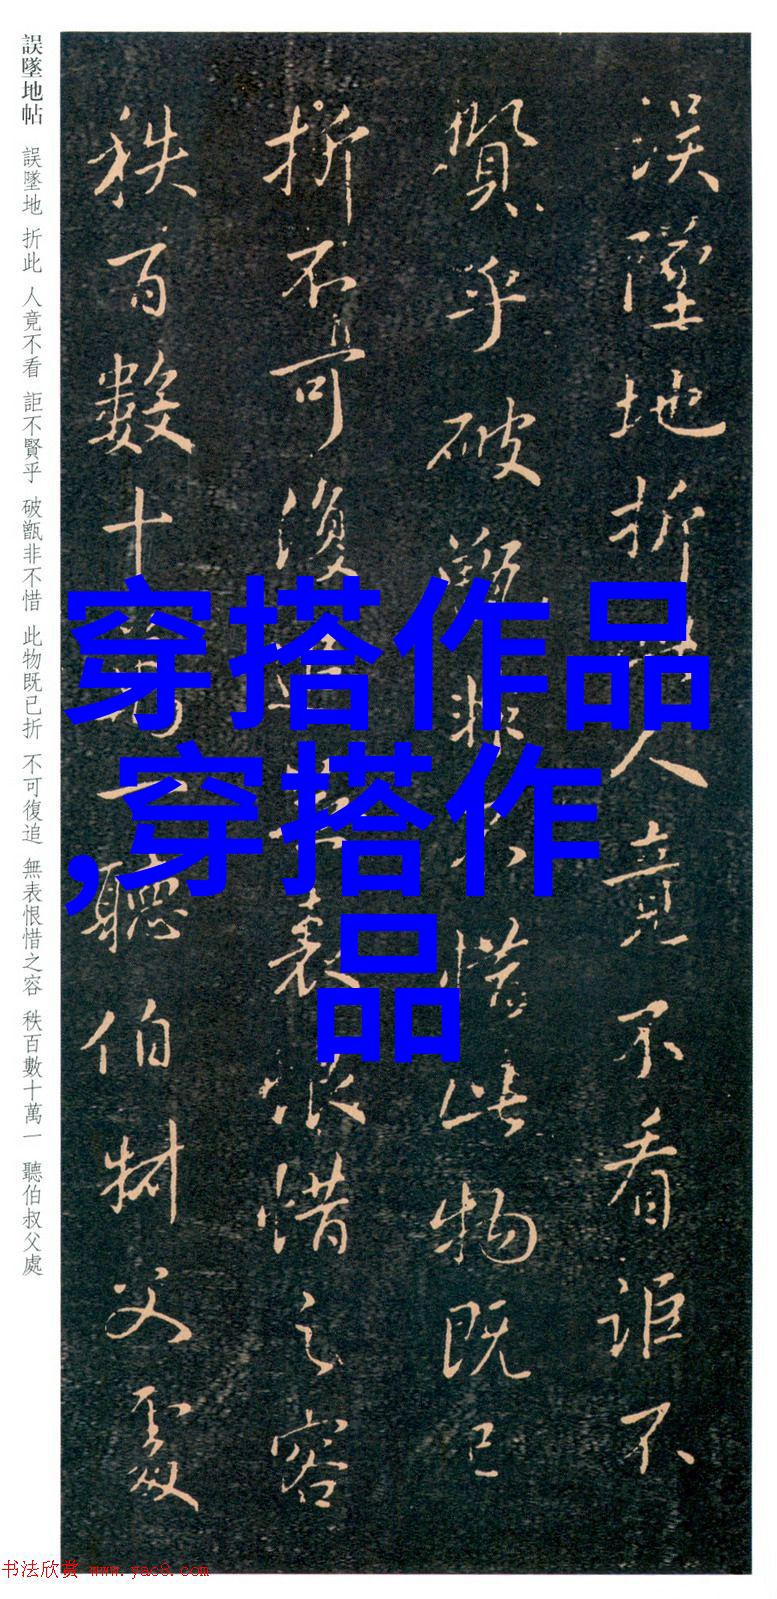 误墜地折此人竟不看詎不
賢乎破甑非不惜此物既已
折不可復追無表恨惜之容
秩百數十萬一聽伯叔父處
誤墜地帖 誤墜地 折此 人竟不看 詎不賢乎 破甑非不惜 此物既已折 不可復追 無表恨惜之容 秩百數十萬一 聽伯叔父處
穿搭作品
,穿搭作
品
书法欣赏 www.yac8.com